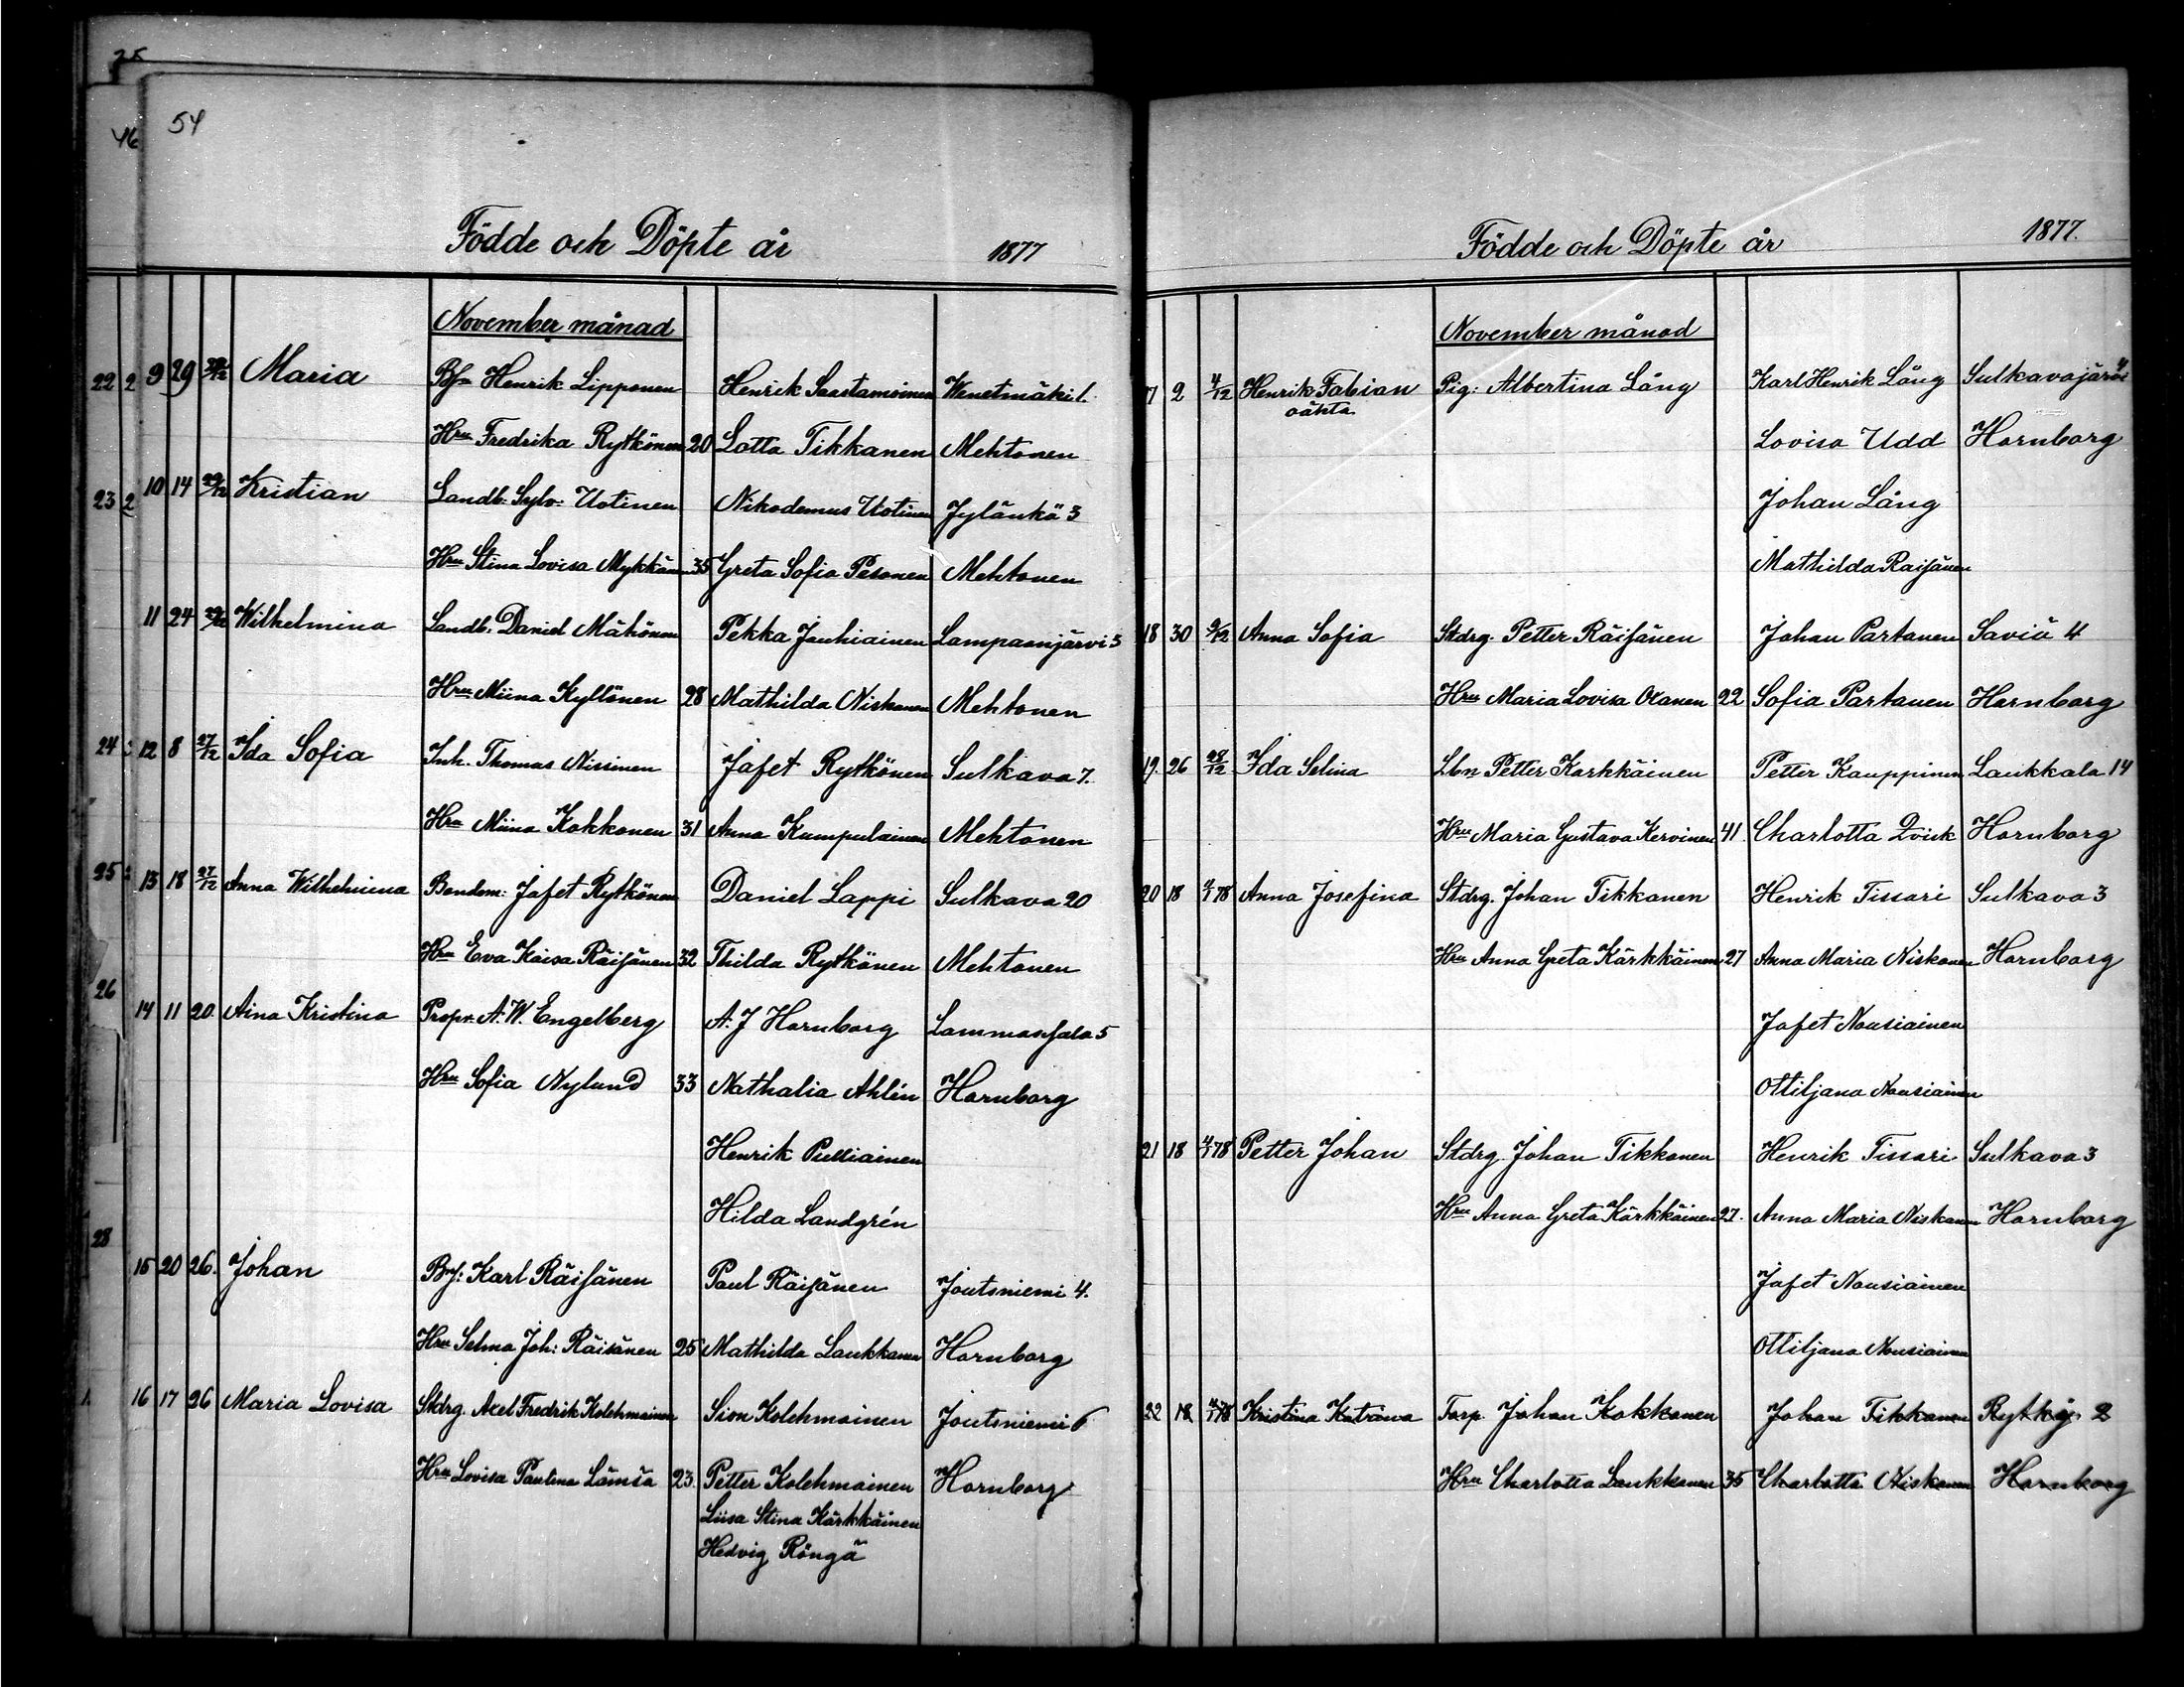 25
46
54
Födde och Döpte år 1877
November månad
9 29 Maria Bfn Henrik Lipponen Henrik Saastamoinen Wenetmäki 1.
Hru Fredrika Rytkönen 20 Lotta Tikkanen Mehtonen
10 14 Kristian Landb. Sylv. Uotinen Nikodemus Uotinen Jylänkö 3
Hru Stina Lovisa Mykkänen 35 Greta Sofia Pesonen Mehtonen
11 24 Wilhelmina Landb. Daniel Mähönen Pekka Jauhiainen Lampaanjärvi 5
Hru Miina Kyllönen 28 Mathilda Niskanen Mehtonen
12 8 27/12 Ida Sofia Inh. Thomas Nissinen Jafet Rytkönen Sulkava 7.
Hru Miina Kokkonen 31 Anna Kumpulainen Mehtonen
13 18 27/12 Anna Wilhelmina Bondem: Jafet Rytkönen Daniel Lappi Sulkava 20
Hru Eva Kaisa Räisänen 32 Thilda Rytkönen Mehtonen
14 11 20. Aina Kristina Propr. A. W. Engelberg A. J Hornborg Lammassalo 5
Hru Sofia Nylund 33 Nathalia Ahlén Hornborg
Henrik Pulliainen
Hilda Landgrén
15 20 26. Johan Karl Räisänen Paul Räisänen Joutsniemi 4.
Hru Selma Joh: Räisänen 25 Mathilda Laukkanen Hornborg
16 17 26 Maria Lovisa Stdrg. Axel Fredrik Kolehmainen Sion Kolehmainen Joutsniemi 6
Hru Lovisa Paulina Lämsä 23. Petter Kolehmainen Hornborg
Liisa Stina Kärkkäinen
Hedvig Röngä
Födde och Döpte år 1877.
November månad
17 2 4/12 Henrik Fabian Pig: Albertina Lång Karl Henrik Lång Sulkavajärvi 4
oäkta Lovisa Udd Hornborg
Johan Lång
Mathilda Raisänen
18 30 9/12 Anna Sofia Stdrg. Petter Räisänen Johan Partanen Saviä 4
Hru Maria Lovisa Oxanen 22 Sofia Partanen Hornborg
19. 26 28/12 Ida Selina Lbn Petter Karkkäinen Petter Kauppinen Laukkala 14
Hru Maria Gustava Kervinen 41. Charlotta Qvick Hornborg
20 18 Anna Josefina Stdrg. Johan Tikkanen Henrik Tissari Sulkava 3
Hru Anna Greta Kärkkäinen 27 Anna Maria Niskanen Hornborg
Jafet Nousiainen
Ottiljana Nousiainen
21 18 Petter Johan Stdrg Johan Tikkanen Henrik Tissari Sulkava 3
Hru Anna Greta Kärkkäinen 27. Anna Maria Niskanen Hornborg
Jafet Nousiainen
Ottiljana Nousiainen
22 18 Kristina Katrana Torp. Johan Kokkonen Johan Tikkanen Rytky 2
Hru Charlotta Laukkanen 35 Charlotta Niskanen Hornborg